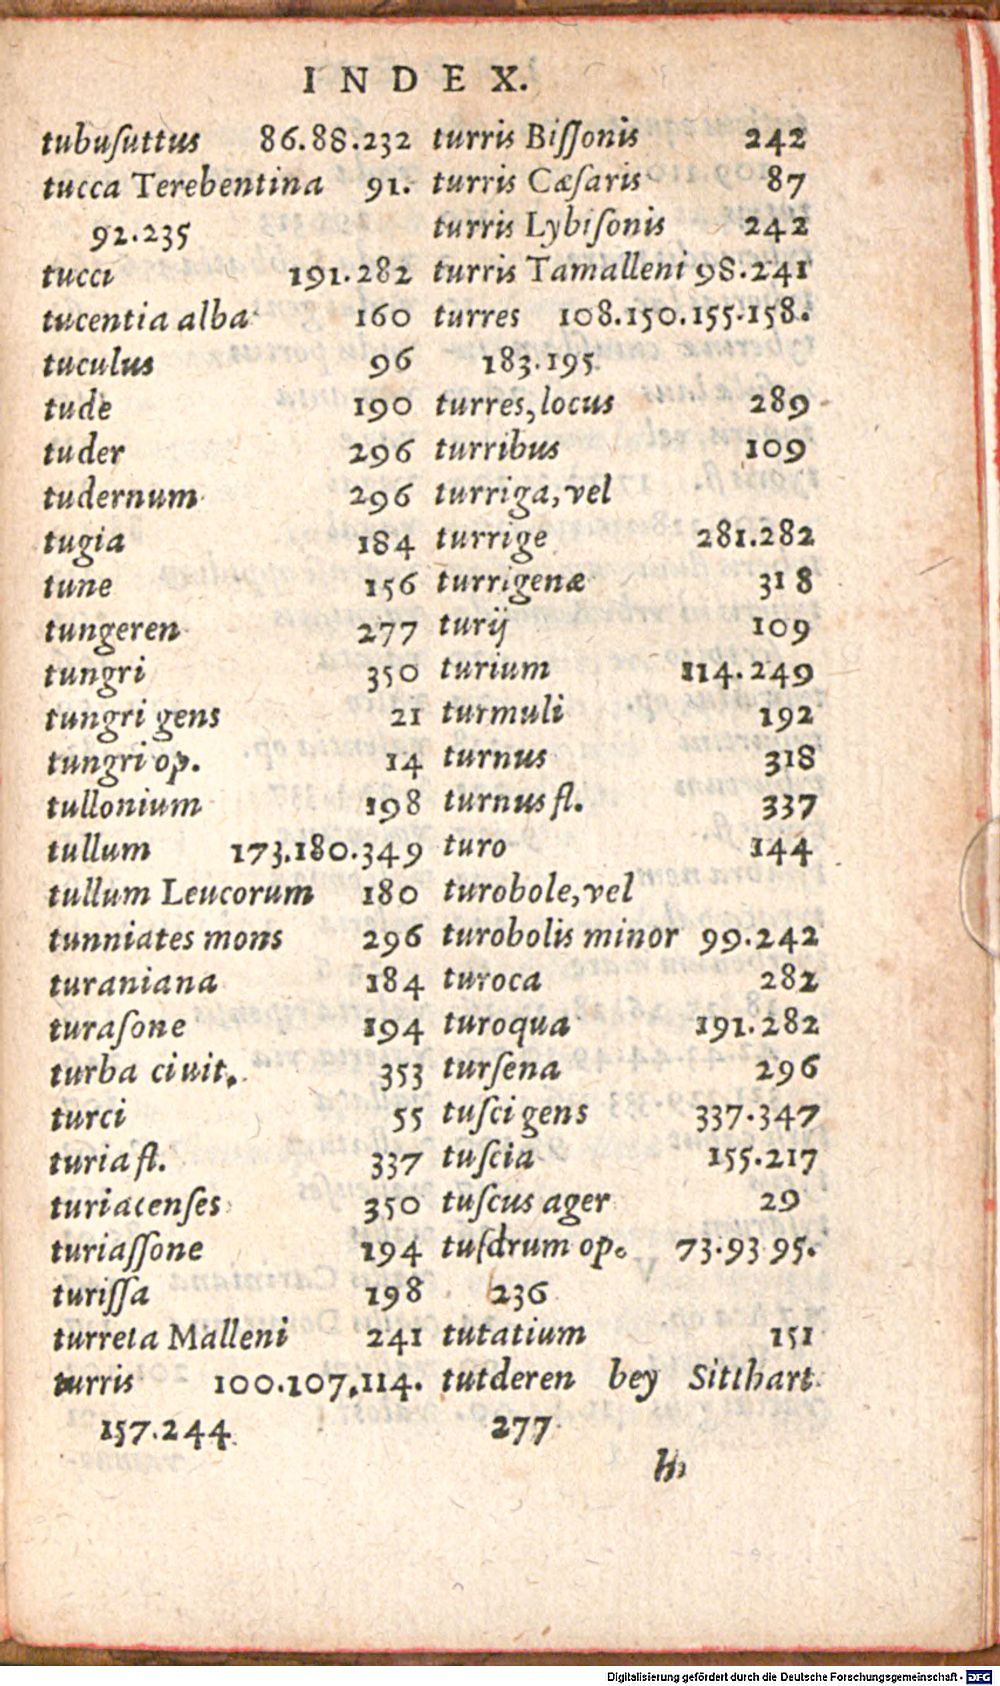 INDEX.
tubuſuttus 86.88.232
tucca Terebentina 91.
92.235
tucci 191.282
tucentia alba 160
tuculus 96
tude 190
tuder 296
tudernum 296
tugia 184
tune 156
tungeren 277
tungri 350
tungri gens 21
tungri op. 14
tullonium 198
tullum 173.180.349
tullum Leucorum 180
tunniates mons 296
turaniana 184
turaſone 194
turba ciuit. 353
turci 55
turia fl. 337
turiacenſes 350
turiaſſone 194
turiſſa 198
turreta Malleni 241
turris 100.107.114.
157.244
turris Biſſonis 242
turris Cæſaris 87
turris Lybiſonis 242
turris Tamalleni 98.241
turres 108.150.155.158.
183.195
turres, locus 289
turribus 109
turriga, vel
turrige 281.282
turrigenæ 318
turij 109
turium 114.249
turmuli 192
turnus 318
turnus fl. 337
turo 144
turobole, vel
turobolis minor 99.242
turoca 282
turoqua 191.282
turſena 296
tuſci gens 337.347
tuſcia 155.217
tuſcus ager 29
tuſdrum op. 73.93 95.
236
tutatium 151
tutderen bey Sitthart
277
h
Digitalisierung gefördert durch die Deutsche Forschungsgemeinschaft - DFG